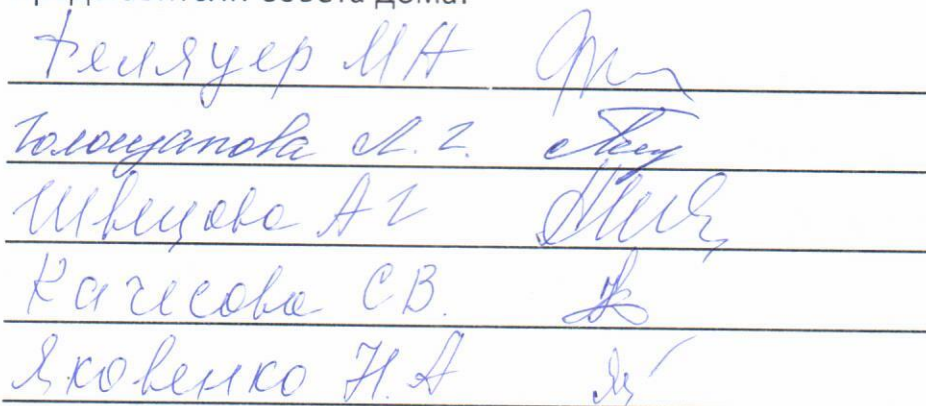 совета дома:
М Н
Голощапова Л. Г.
Швецова А Г
Качесова С В.
Яковенко Н. А